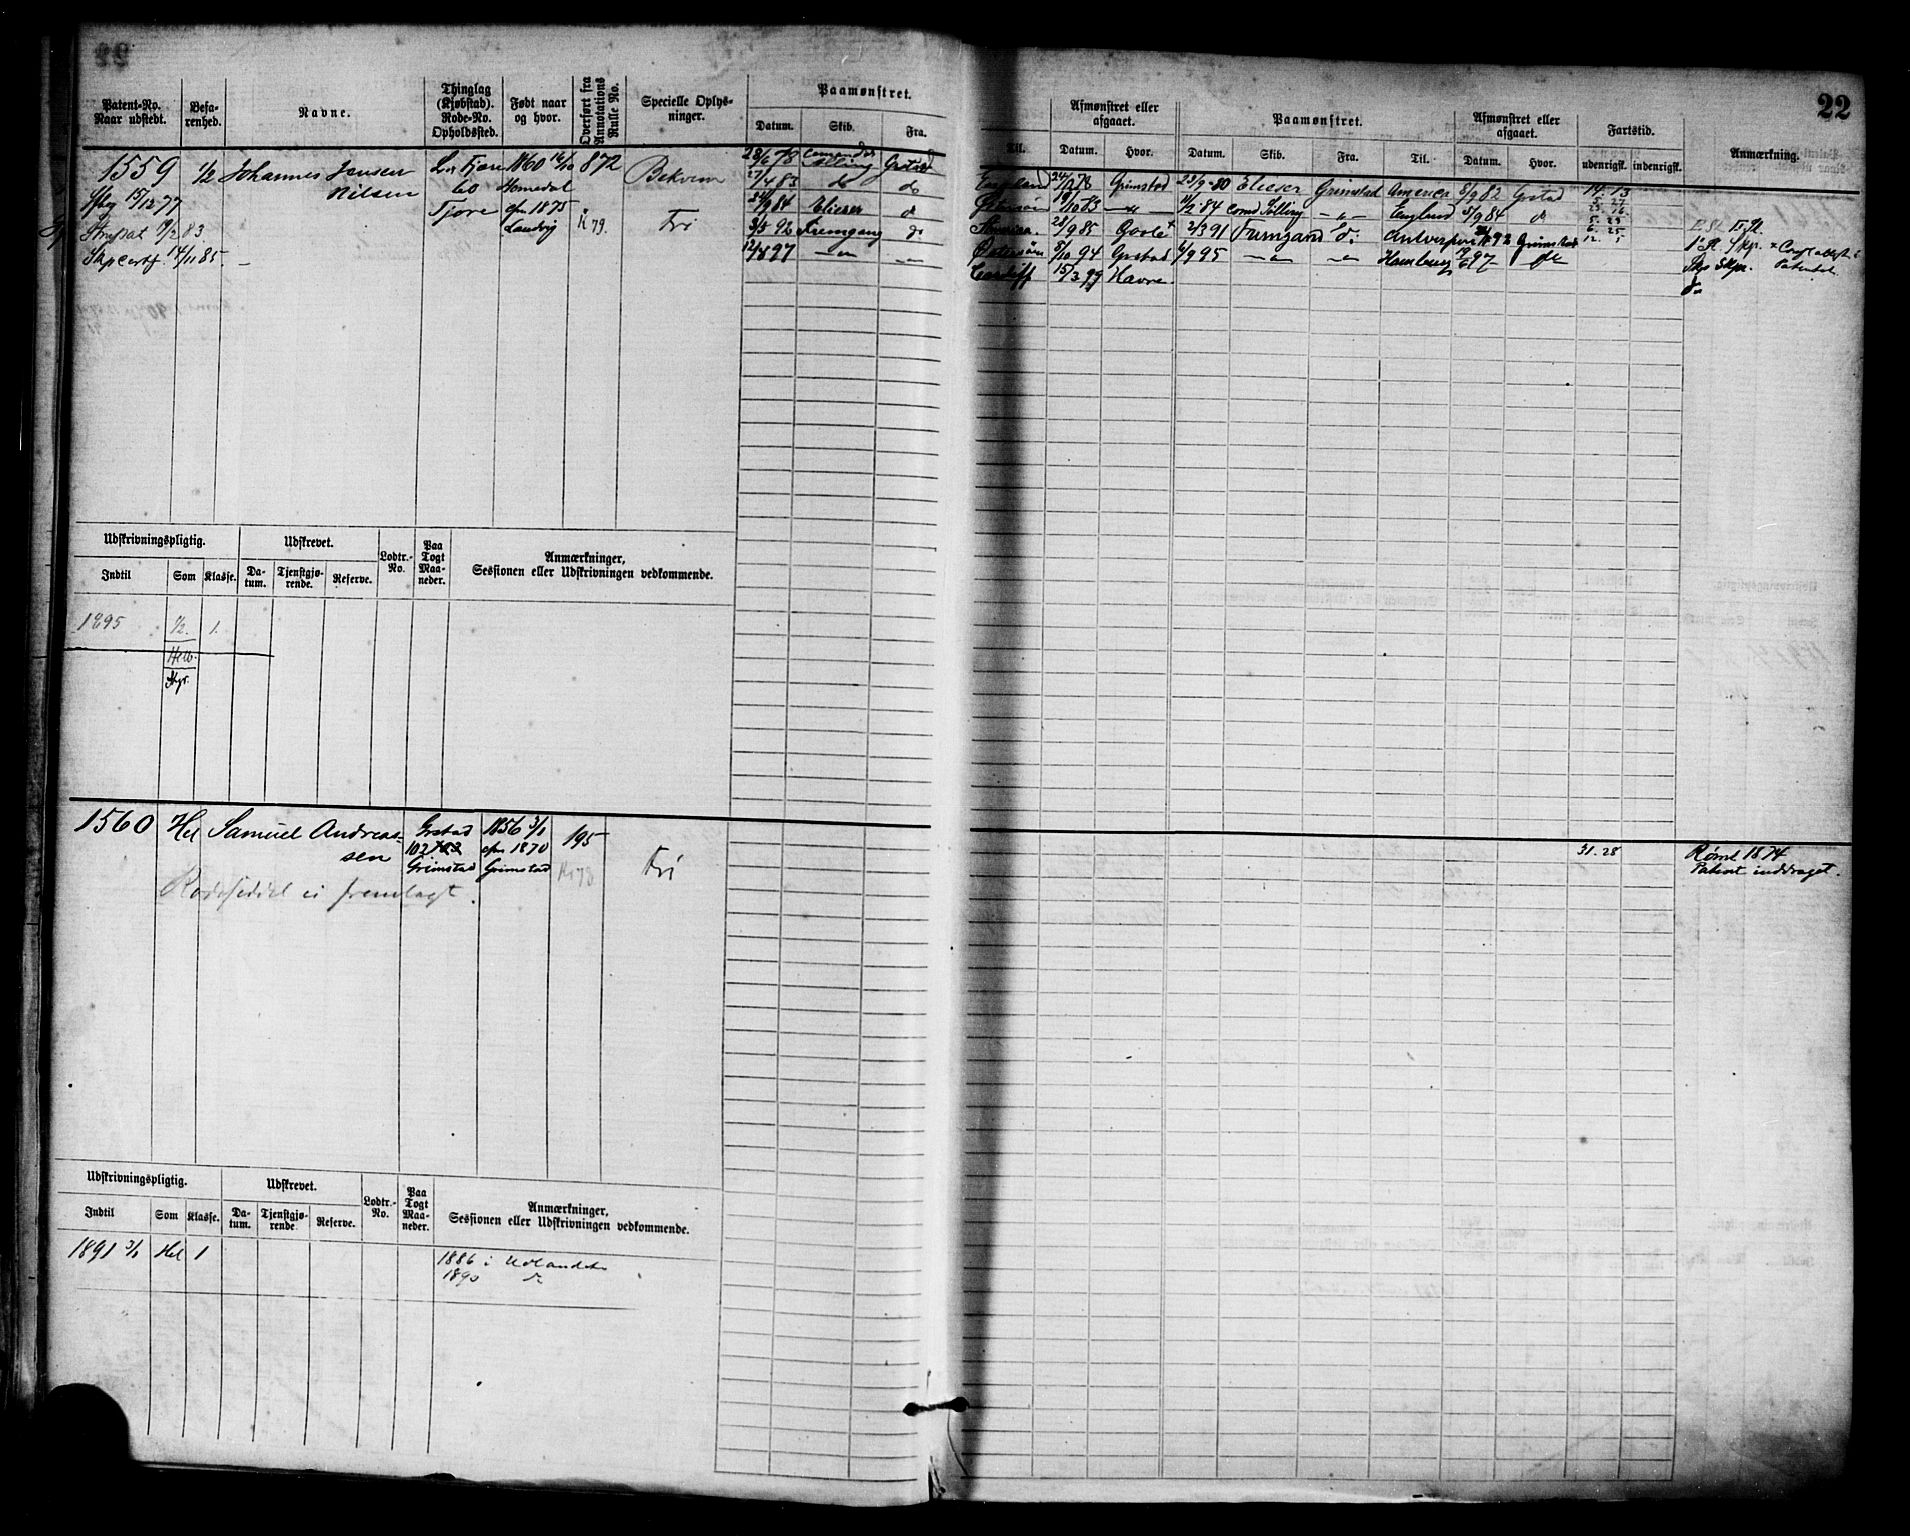 22
Patent-No. Naar udstedt.
Befarenhed.
Navne.
Thinglag (Kjøbstad). Rode-No. Opholdssted.
Født naar og hvor.
Overført fra Annotations Rulle No.
Specielle Oplysninger.
Paamønstret.
Datum. Skib. Fra. Til.
Afmønstret eller afgaaet.
Datum. Hvor.
Paamønstret.
Datum. Skib. Fra. Til.
Afmønstret eller afgaaet.
Datum. Hvor.
Fartstid.
udenrigsk. indenrigsk.
Anmærkning.
1559 1/2 Johannes Jensen Nilsen
60 Homedal
Tjore cfm 1875 Landvig
1860 16/10 872 Bekvem
15/12 77
9/2 83
14/11 85 —
K 79. Fri
28/6 78 Grstad England 24/10 78 Grimstad 23/9 80 Elieser Grimstad America 8/9 82 Grstad 14. 13
27/4 83 do do Østersøen 19/10 83 — " — 11/2 84 Comd Sølling — " — England 5/9 84 do
24/9 84 Elieser do America 28/9 85 Goole 2/3 91 Fremgang do Antwerpen 92 Grimstad
3/5 92 Fremgang do Østersøen 8/10 94 Grstad 6/9 95 — " — — " — Hamburg 97
12/8 97 — " — — " — Cardiff 15/3 99 Havre.
Udskrivningspligtig.
Indtil Som Klasse.
Udskrevet.
Datum. Tjenstgjørende. Reserve.
Lodtr.-No.
Paa Togt Maaneder.
Anmærkninger, Sessionen eller Udskrivningen vedkommende.
1895 1/2. 1.
Hel
1560 Hel Samuel Andreassen
Grstad 1856 3/1 195
102 cfm 1870
Grimstad Grimstad
Fri
Rodesedel ei fremlagt.
31. 28
Rømt 1874
Patent inddraget.
Udskrivningspligtig.
Indtil Som Klasse.
Udskrevet.
Datum. Tjenstgjørende Reserve.
Lodtr.-No.
Paa Togt Maaneder.
Anmærkninger, Sessionen eller Udskrivningen vedkommende.
1891 3/1 Hel 1
1886 i Udlandet
1890 do